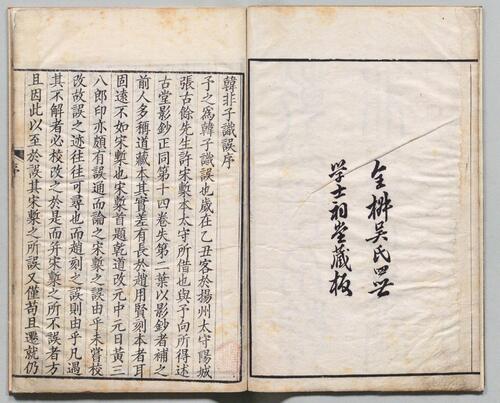 全椒吳氏四世
學士祠堂藏板
韓非子識誤序
予之爲韓子識誤也歲在乙丑客於揚州太守陽城
張古餘先生許宋槧本太守所借也與予向所得述
古堂影鈔正同第十四卷失第二葉以影鈔者補之
前人多稱道藏本其實差有長於趙用賢刻本者耳
固遠不如宋槧也宋槧首題乾道改元中元日黃三
八郎印亦頗有誤通而論之宋槧之誤由乎未嘗校
改故誤之迹往往可尋也而趙刻之誤則由乎凡遇
其不解者必校改之於是而并宋槧之所不誤者方
且因此以至於誤其宋槧之所誤又僅苟且遷就仍